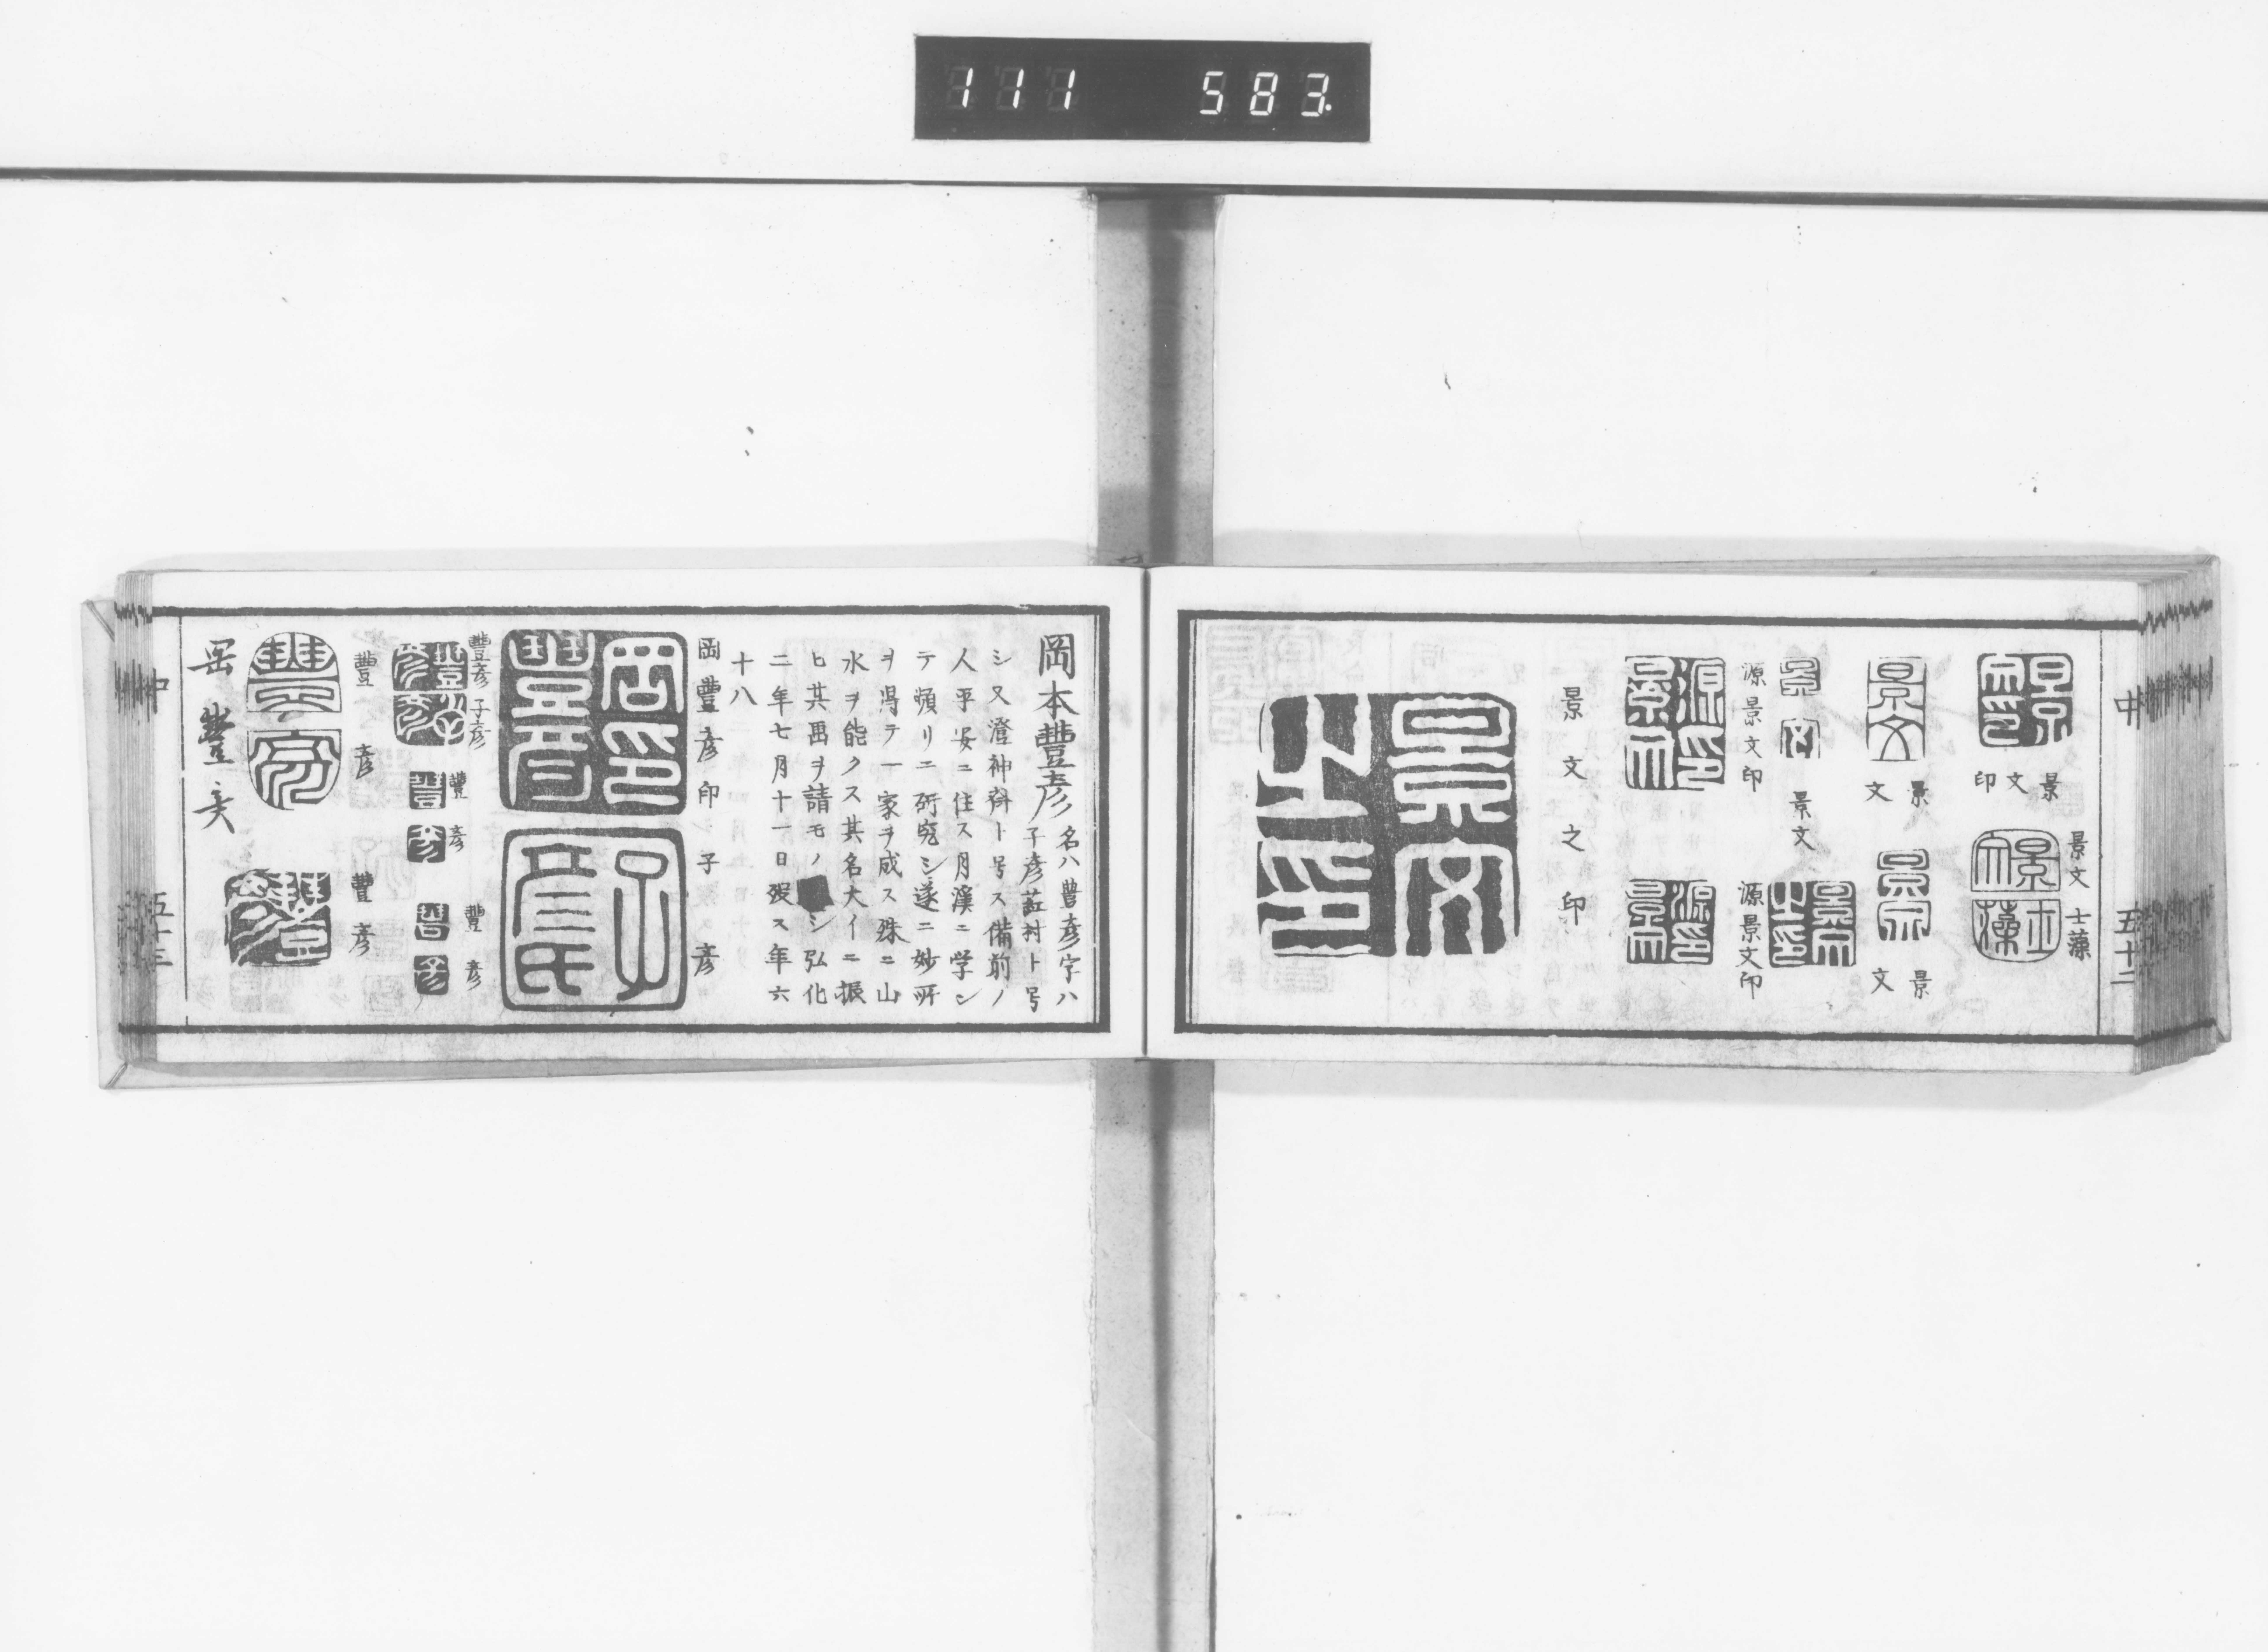 111 583.
中
五十二
景文印
景文 士藻
景文
景文
景文
源景文印
源景文印
景文之印
岡本豊彦
名ハ豊彦字ハ
子彦葒村ト号
シ又澄神斎ト号ス備前ノ
人平安ニ住ス月渓ニ学ン
テ頻リニ研究シ遂ニ妙所
ヲ得テ一家ヲ成ス殊ニ山
水ヲ能クス其名大イニ振
ヒ其畫ヲ請モノ シ弘化
二年七月十一日歿ス年六
十八
岡豐彦印 子彦
豐彦 子彦
豐彦
豐彦
豐彦
豐彦
中
五十三